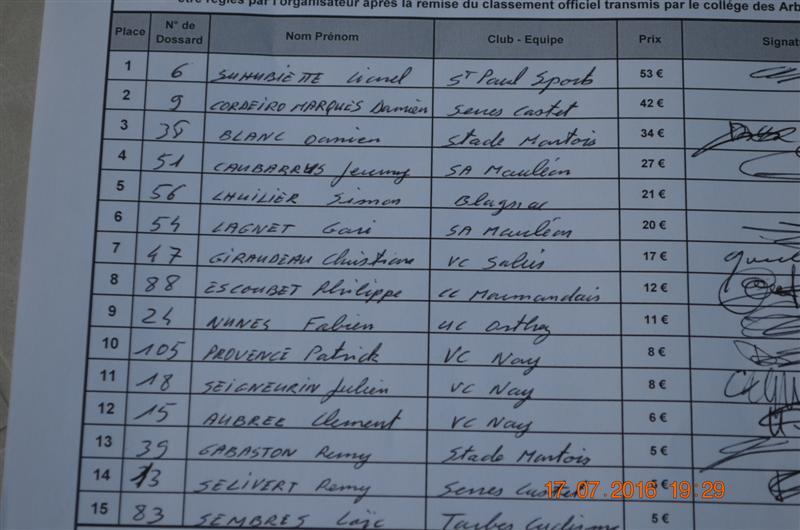 être réglés par l'organisateur après la remise du classement officiel transmis par le collége des Arb
Place N° de Dossard Nom Prénom Club - Equipe Prix Signat
1 6 SUHUBIETTE Lionel ST Paul Sports 53 €
2 9 CORDEIRO MARQUES Damien Serres Castet 42 €
3 35 BLANC Damien Stade Montois 34 €
4 51 CAUBARRUS Jeremy SA Mauléon 27 €
5 56 LHUILIER Simon Blagnac 21 €
6 54 LAGNET Gari SA Mauléon 20 €
7 47 GIRAUDEAU Christiane VC Salis 17 €
8 88 ESCOUBET Philippe CC Marmandais 12 €
9 24 NUNES Fabien UC Orthez 11 €
10 105 PROVENCE Patrick VC Nay 8 €
11 18 SEIGNEURIN Julien VC Nay 8 €
12 15 AUBREE Clement VC Nay 6 €
13 39 GABASTON Remy Stade Montois 5 €
14 13 SELIVERT Remy Serres Castet 5 €
15 83 SEMBRES Loïc Tarbes Cyclisme 5 €
17.07.2016 19:29